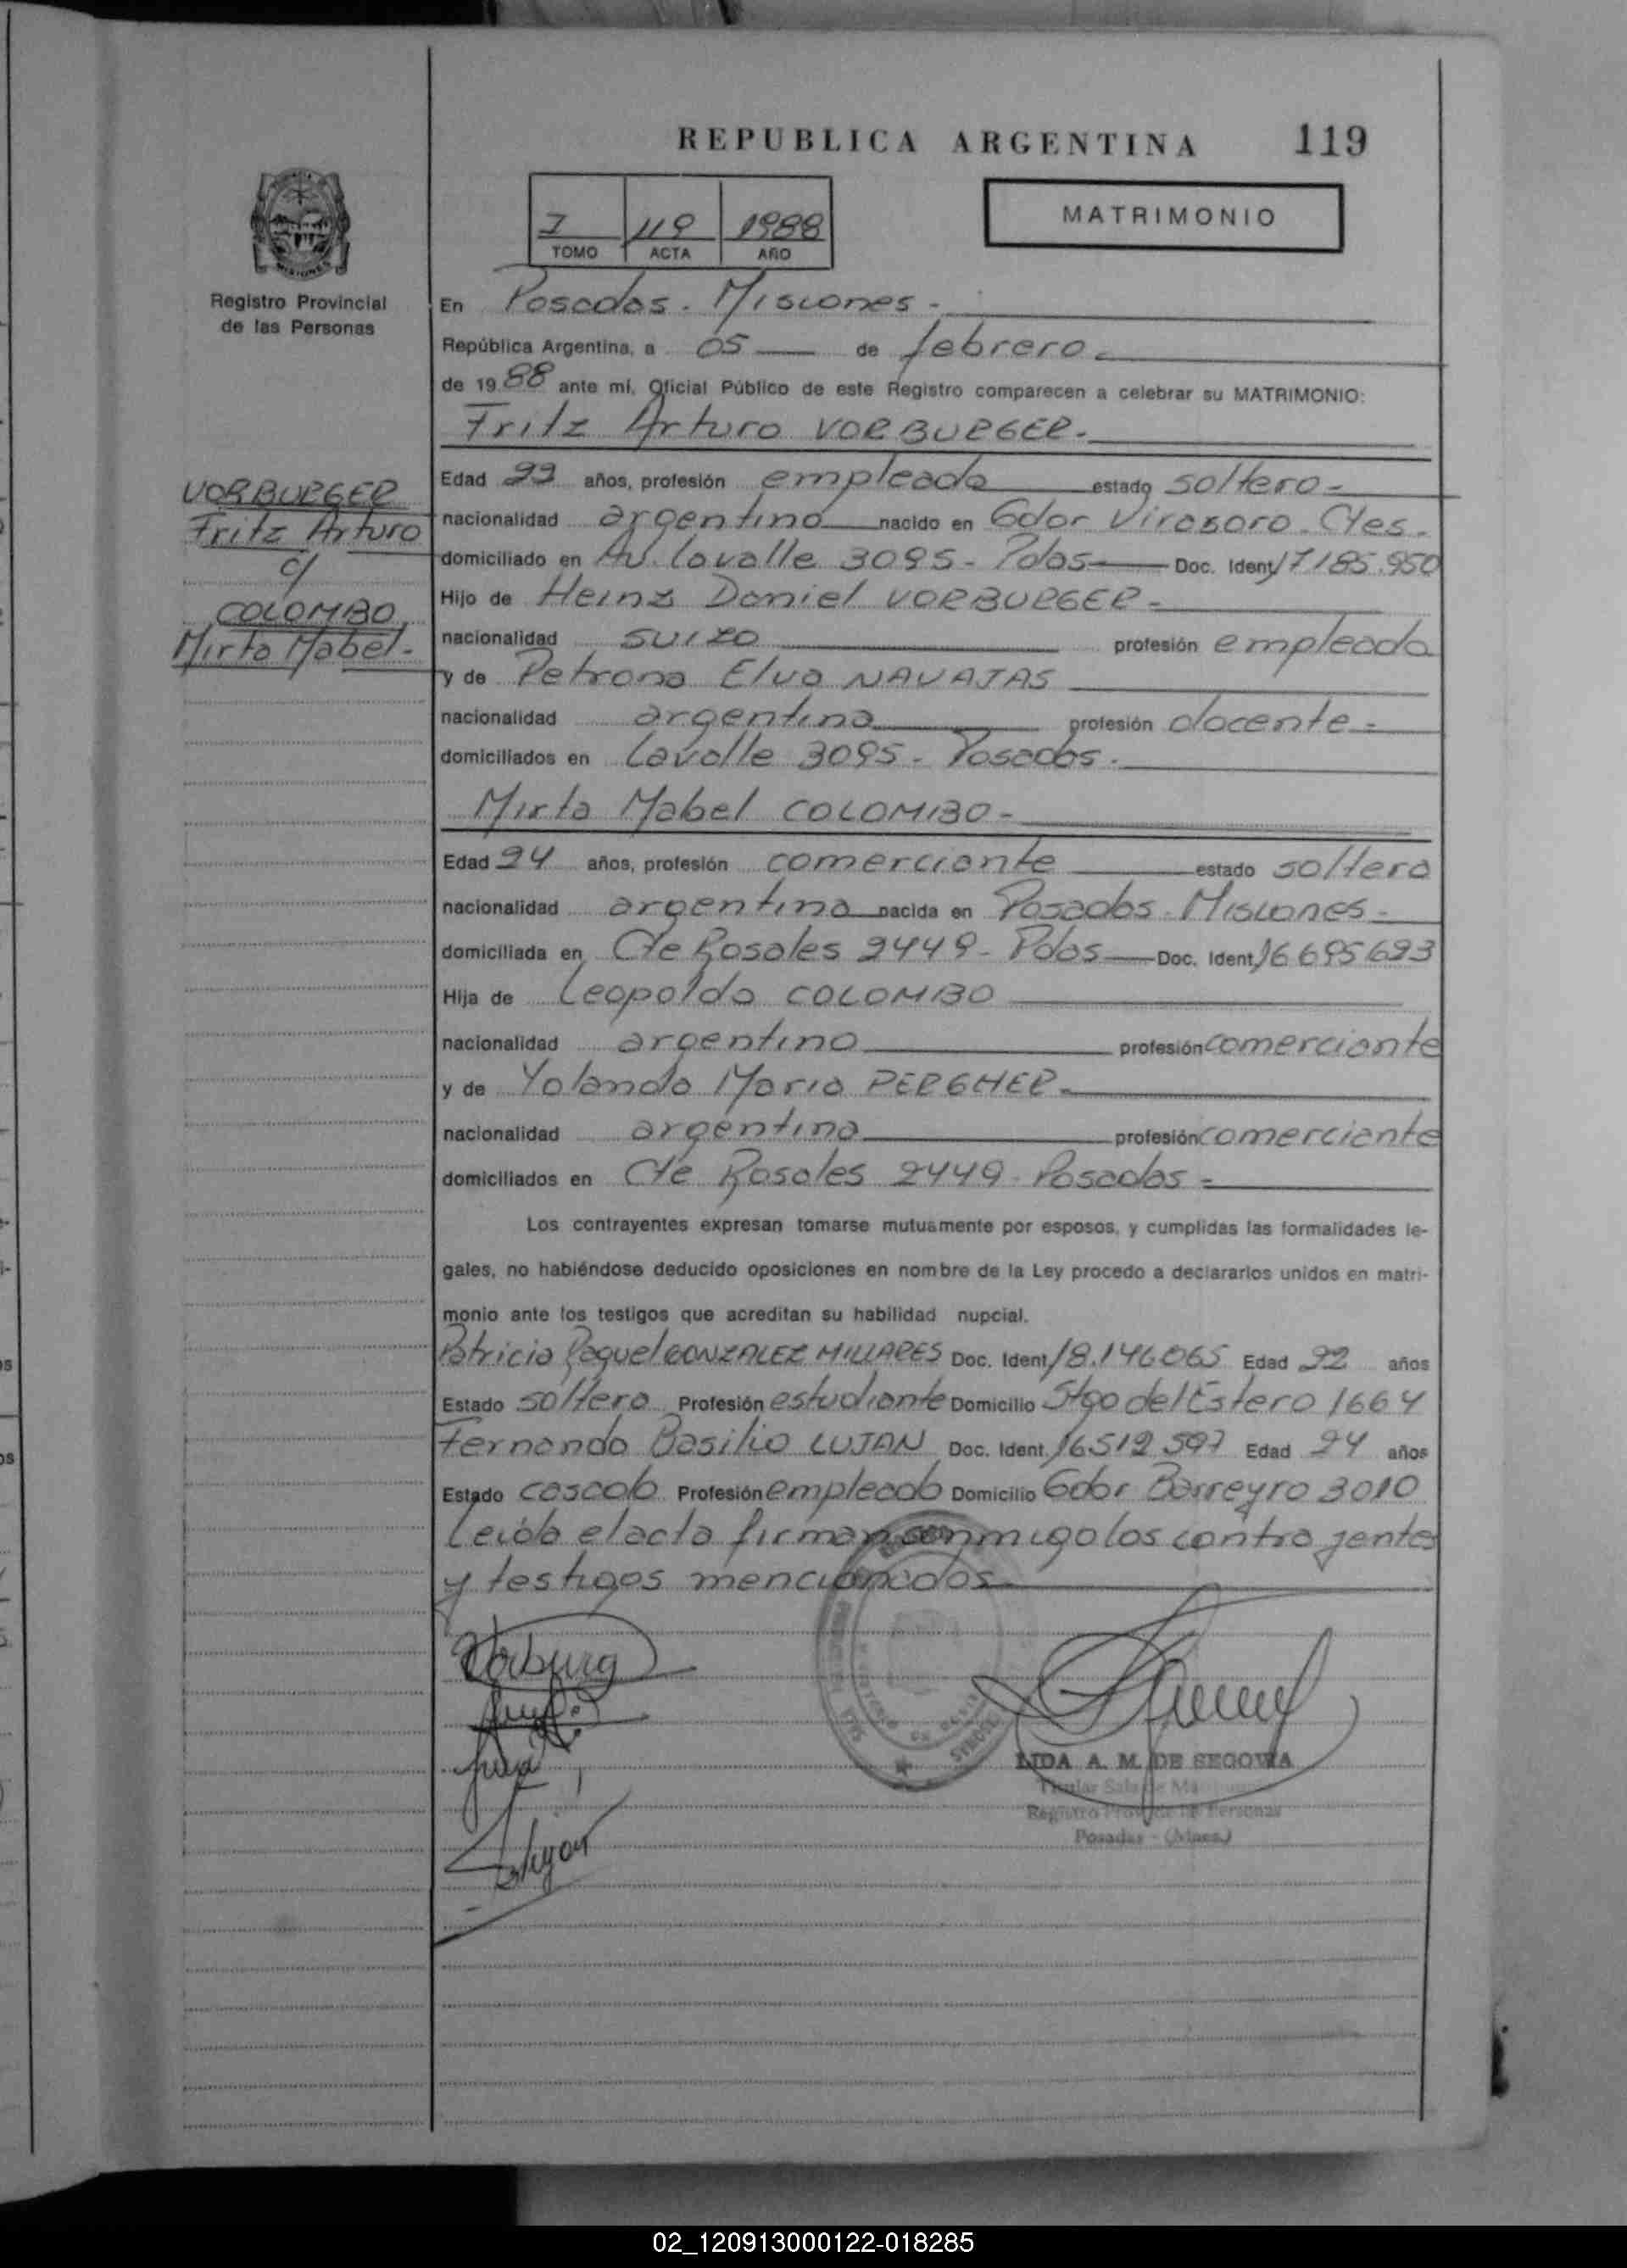 REPUBLICA ARGENTINA 119
I 119 1988
TOMO ACTA AÑO
MATRIMONIO
Registro Provincial
de las Personas
En Posadas. Misiones -
República Argentina, a 05 de febrero
de 1988 ante mí, Oficial Público de este Registro comparecen a celebrar su MATRIMONIO:
Fritz Arturo VORBURGER.
VORBURGER
Fritz Arturo
c/
COLOMBO
Mirta Mabel.
Edad 23 años, profesión empleado estado soltero -
nacionalidad argentino nacido en Gdor Virasoro. Ctes.
domiciliado en Av. Lavalle 3095 - Pdas Doc. Ident. 17185.950
Hijo de Heinz Daniel VORBURGER -
nacionalidad suizo profesión empleado
y de Petrona Elva NAVAJAS
nacionalidad argentina profesión docente -
domiciliados en Lavalle 3095 - Posadas.
Mirta Mabel COLOMBO -
Edad 24 años, profesión comerciante estado soltera
nacionalidad argentina nacida en Posadas - Misiones -
domiciliada en Cte Rosales 2449 - Pdas Doc. Ident. 16695623
Hija de Leopoldo COLOMBO
nacionalidad argentino profesión comerciante
y de Yolanda Maria PERGHER -
nacionalidad argentina profesión comerciante
domiciliados en Cte Rosales 2449 - Posadas -
Los contrayentes expresan tomarse mutuamente por esposos, y cumplidas las formalidades le-
gales, no habiéndose deducido oposiciones en nombre de la Ley procedo a declararlos unidos en matri-
monio ante los testigos que acreditan su habilidad nupcial.
Patricia Raquel GONZALEZ MILLARES Doc. Ident. 18.146065 Edad 22 años
Estado soltera Profesión estudiante Domicilio Stgo del Estero 1664
Fernando Basilio LUJAN Doc. Ident. 16512597 Edad 24 años
Estado casado Profesión empleado Domicilio Gdor Barreyro 3010
Leida el acta firman conmigo los contrayentes
y testigos mencionados
LIDA A. M. DE SEGOVIA
Titular Sala de
Registro Prov. de las Personas
Posadas - (Mnes.)
02_120913000122-018285